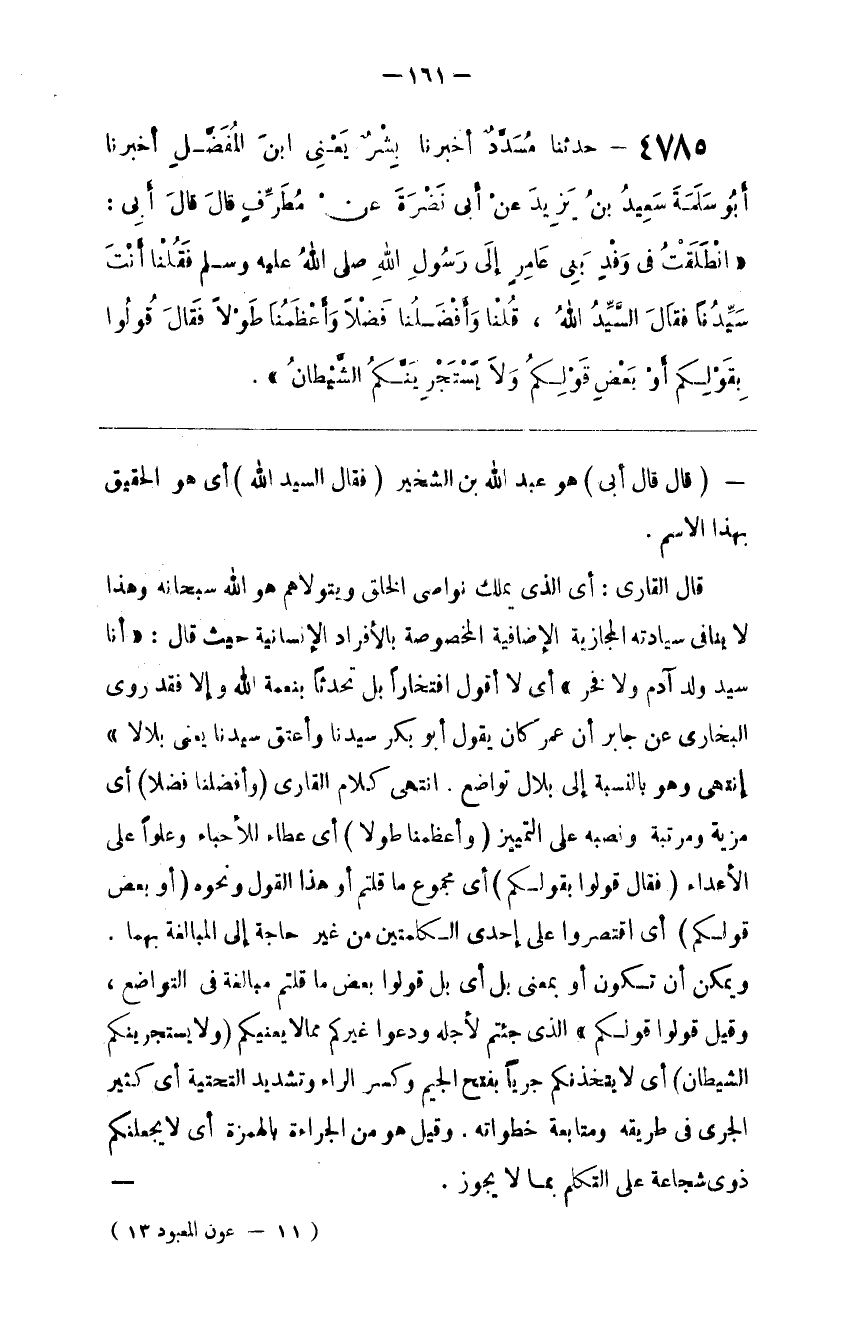 — ١٦١ —
٤٧٨٥ — حدثنا مُسَدَّدٌ أخبرنا بِشْرٌ يَعْنِى ابنَ الْمُفَضَّلِ أخبرنا
أَبُو سَلَمَةَ سَعِيدُ بنُ يَزِيدَ عنْ أبى نَضْرَةَ عنْ مُطَرِّفٍ قالَ قالَ أَبِى :
« انْطَلَقْتُ فى وَفْدِ بَنِى عَامِرٍ إلَى رَسُولِ اللهِ صلى اللهُ عليه وسلم فَقُلْنا أَنْتَ
سَيِّدُنَا فقَالَ السَّيِّدُ اللهُ ، قُلْنا وَأَفْضَلُنا فَضْلاً وَأَعْظَمُنا طَوْلاً فَقالَ قُولُوا
بِقَوْلِكم أَوْ بَعْضِ قَوْلِكمُ وَلاَ يَسْتَجْرِيَنَّكمُ الشَّيْطانُ » .
— ( قال قال أبى ) هو عبد الله بن الشخير ( فقال السيد الله ) أى هو الحقيق
بهذا الاسم .
قال القارى : أى الذى يملك نواصى الخلق ويتولاهم هو الله سبحانه وهذا
لا ينافى سيادته المجازية الإضافية المخصوصة بالأفراد الإنسانية حيث قال : « أنا
سيد ولد آدم ولا فخر » أى لا أقول افتخاراً بل تحدثاً بنعمة الله وإلا فقد روى
البخارى عن جابر أن عمر كان يقول أبو بكر سيدنا وأعتق سيدنا يعنى بلالا »
إنتهى وهو بالنسبة إلى بلال تواضع . انتهى كلام القارى (وأفضلنا فضلا) أى
مزية ومرتبة ونصبه على التمييز ( وأعظمنا طولا ) أى عطاء للأحباء وعلواً على
الأعداء ( فقال قولوا بقولكم ) أى مجموع ما قلتم أو هذا القول ونحوه ( أو بعض
قولكم ) أى اقتصروا على إحدى الكلمتين من غير حاجة إلى المبالغة بهما .
ويمكن أن تكون أو بمعنى بل أى بل قولوا بعض ما قلتم مبالغة فى التواضع ،
وقيل قولوا قولكم » الذى جئتم لأجله ودعوا غيركم مما لا يعنيكم (ولا يستجرينكم
الشيطان) أى لا يتخذنكم جرياً بفتح الجيم وكسر الراء وتشديد التحتية أى كثير
الجرى فى طريقه ومتابعة خطواته . وقيل هو من الجراءة بالهمزة أى لا يجعلنكم
ذوى شجاعة على التكلم بما لا يجوز . —
( ١١ — عون المعبود ١٣ )